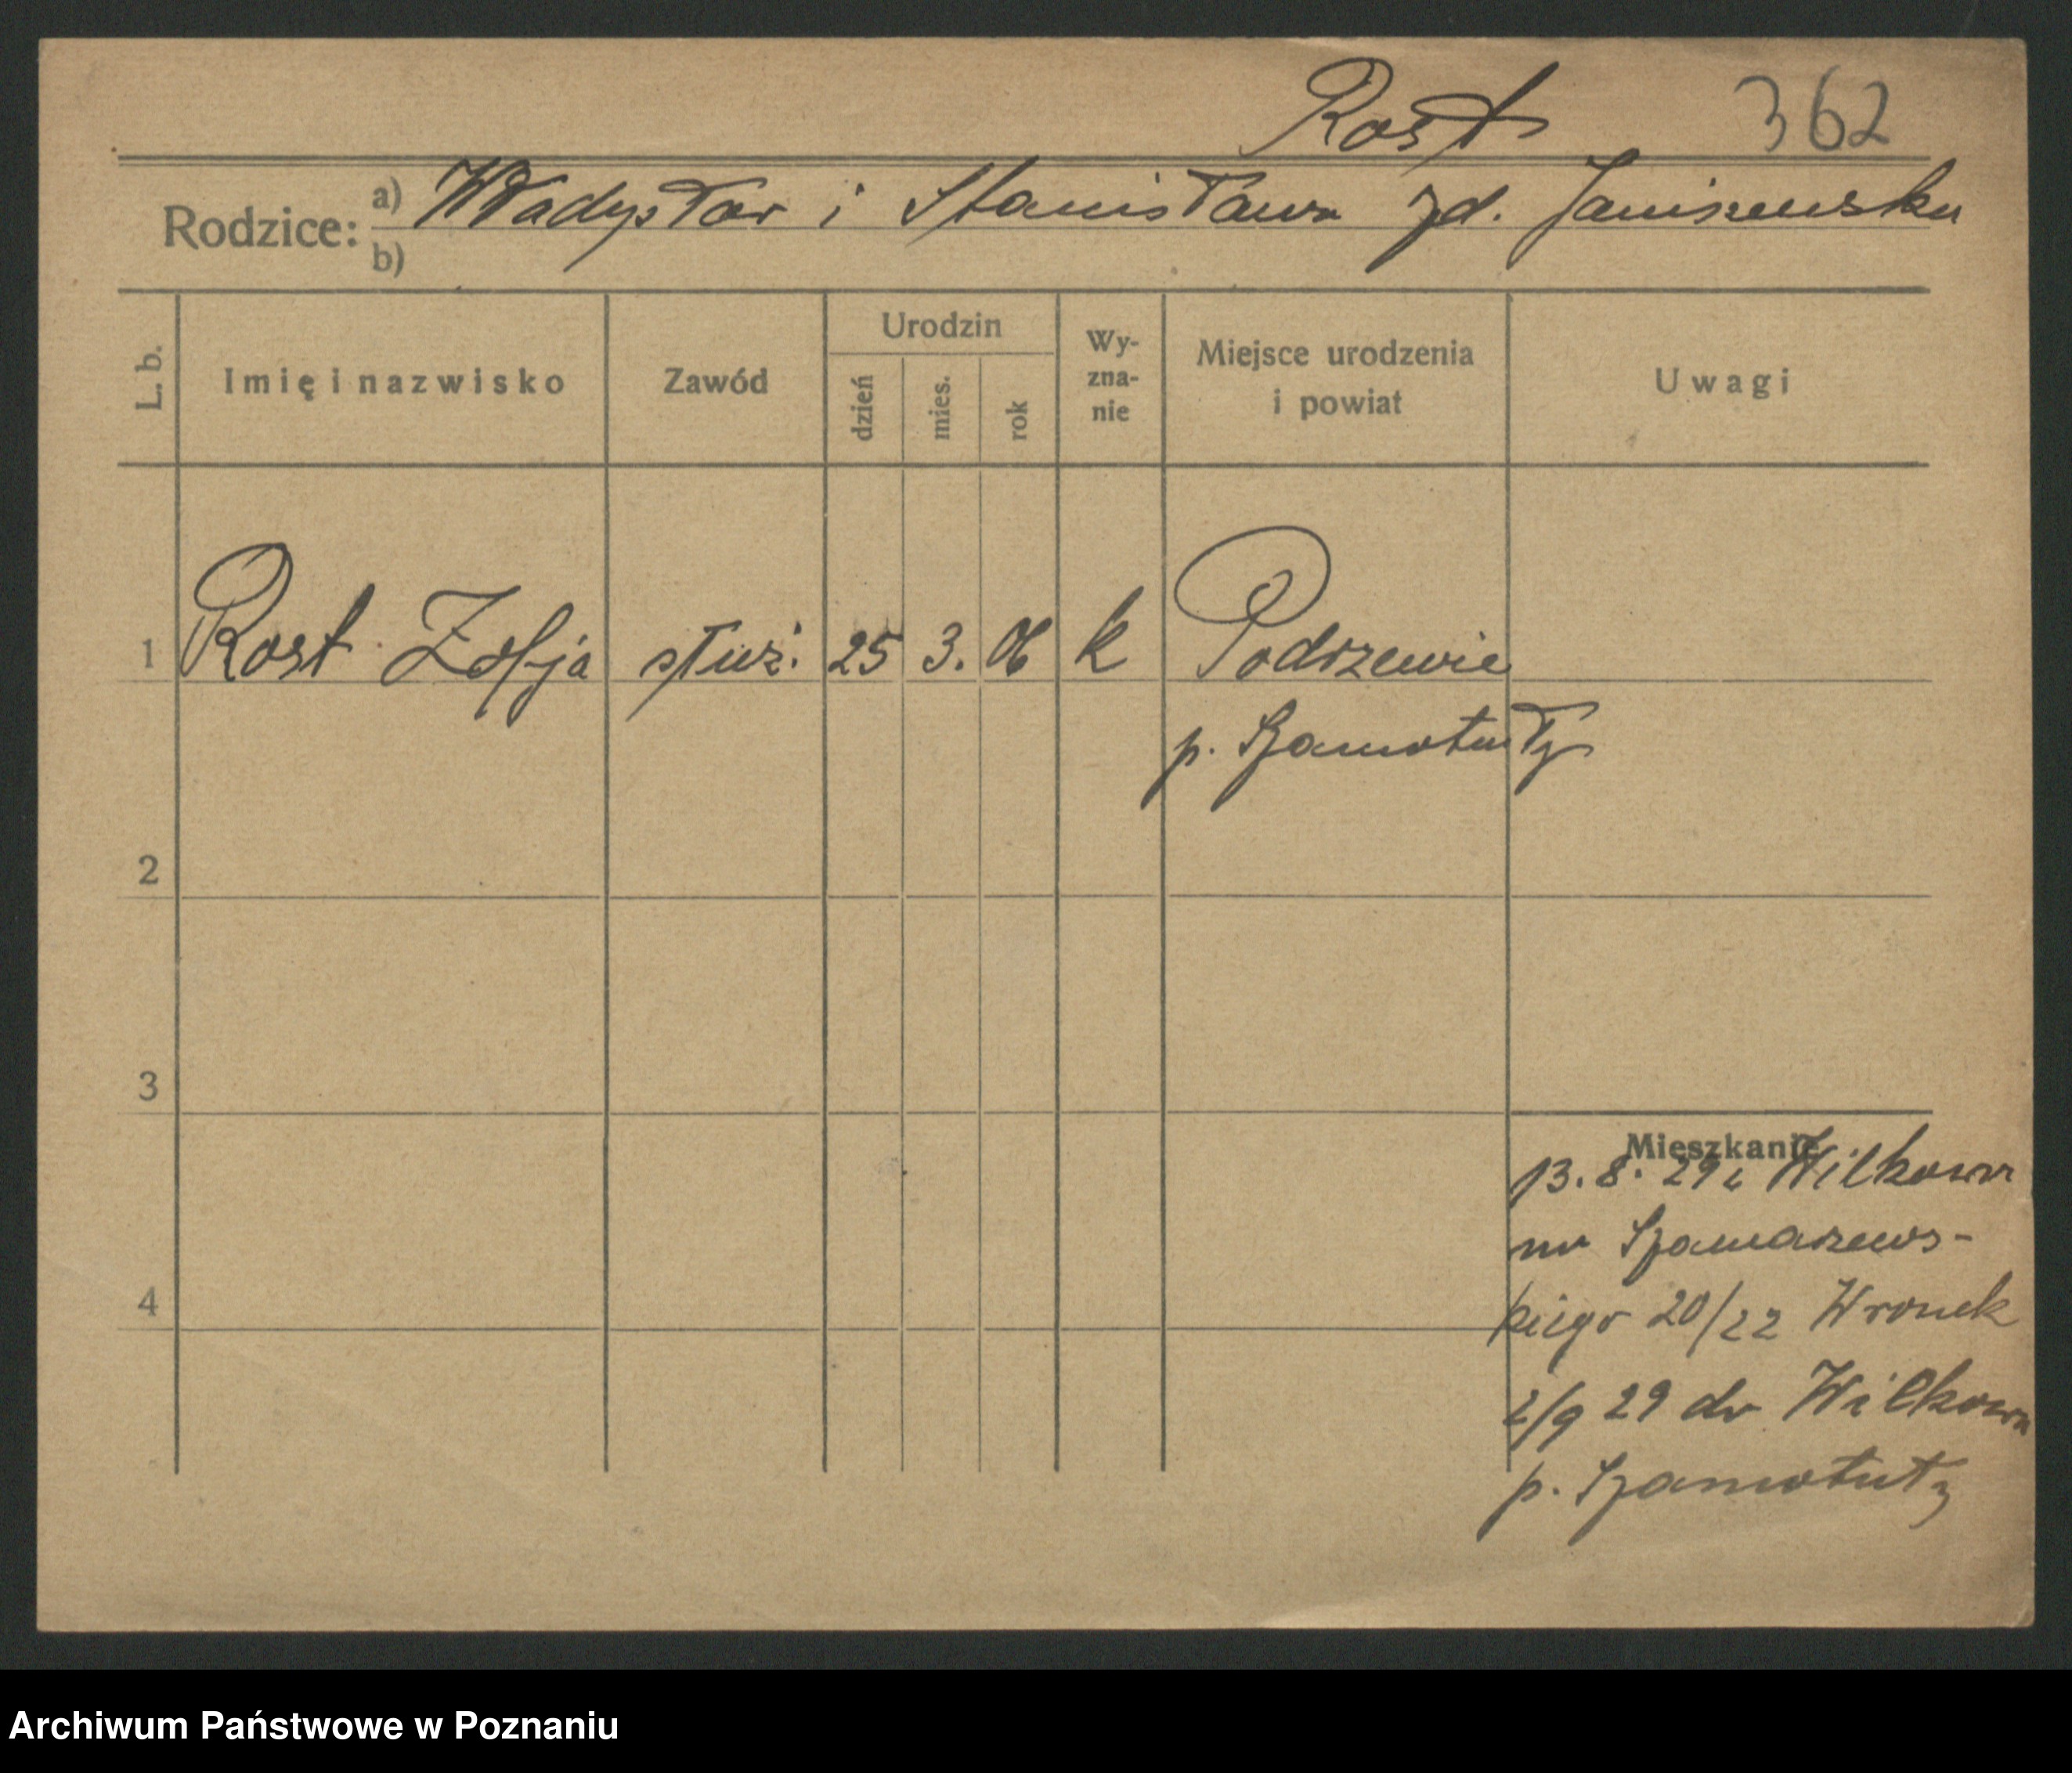 Rost 362
Rodzice: a) Władysław i Stanisława zd. Janiszewska
b)
L. b. Imię i nazwisko Zawód Urodzin dzień mies. rok Wy-zna-nie Miejsce urodzenia i powiat Uwagi
1 Rost Zofja służ. 25 3. 06 k Podrzewie
p. Szamotuły
2
3
Mieszkanie
13.8.29 z Wilkowa
na Szamarzews-
4 kiego 20/22 Wronek
2/9 29 do Wilkowa
p. Szamotuły
Archiwum Państwowe w Poznaniu